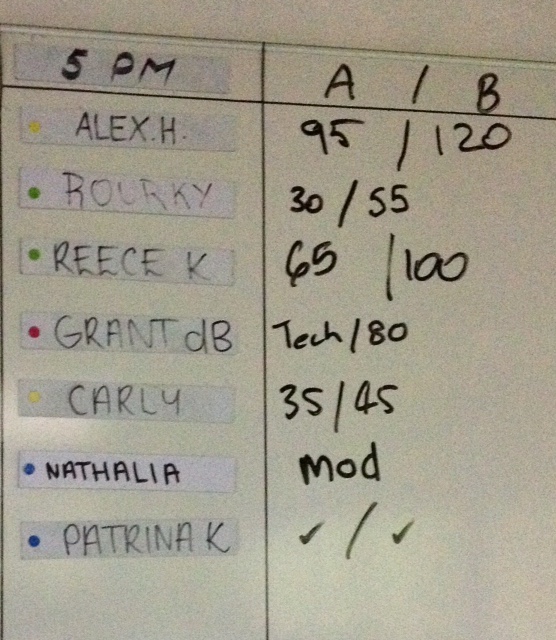 5 PM A / B
ALEX.H. 95 / 120
ROURKY 30 / 55
REECE K 65 / 100
GRANT dB Tech / 80
CARLY 35 / 45
NATHALIA Mod
PATRINA K ✓ / ✓